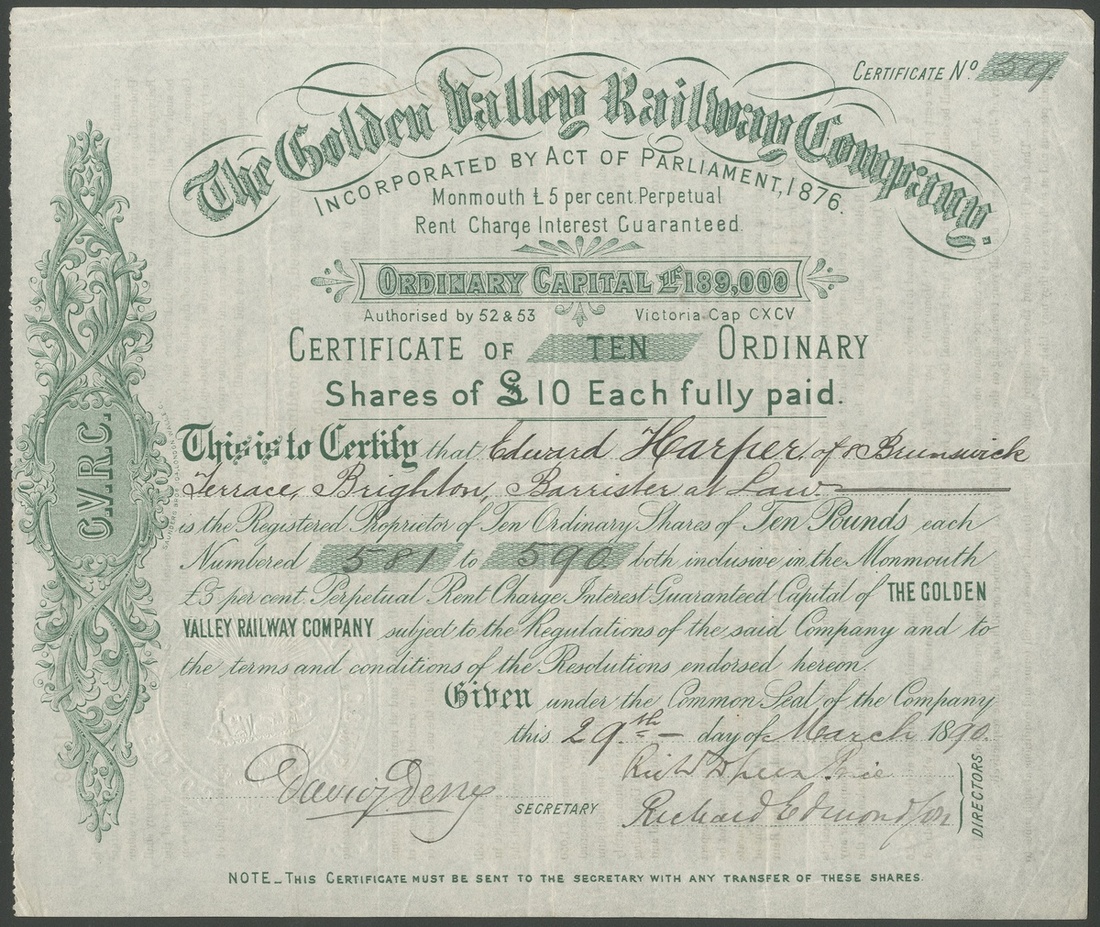 CERTIFICATE Nº 59
The Golden Valley Railway Company.
INCORPORATED BY ACT OF PARLIAMENT, 1876.
Monmouth £5 per cent. Perpetual
Rent Charge Interest Guaranteed.
ORDINARY CAPITAL £189,000
Authorised by 52 & 53 Victoria Cap CXCV
CERTIFICATE OF TEN ORDINARY
Shares of £10 Each fully paid.
This is to Certify that Edward Harper of 8 Brunswick
Terrace, Brighton, Barrister at Law
is the Registered Proprietor of Ten Ordinary Shares of Ten Pounds each
Numbered 581 to 590 both inclusive in the Monmouth
£5 per cent. Perpetual Rent Charge Interest Guaranteed Capital of THE GOLDEN
VALLEY RAILWAY COMPANY subject to the Regulations of the said Company and to
the terms and conditions of the Resolutions endorsed hereon.
Given under the Common Seal of the Company
this 29th day of March 1890.
SECRETARY
Richard Edmondson
DIRECTORS
NOTE_THIS CERTIFICATE MUST BE SENT TO THE SECRETARY WITH ANY TRANSFER OF THESE SHARES.
G.V.R.C.